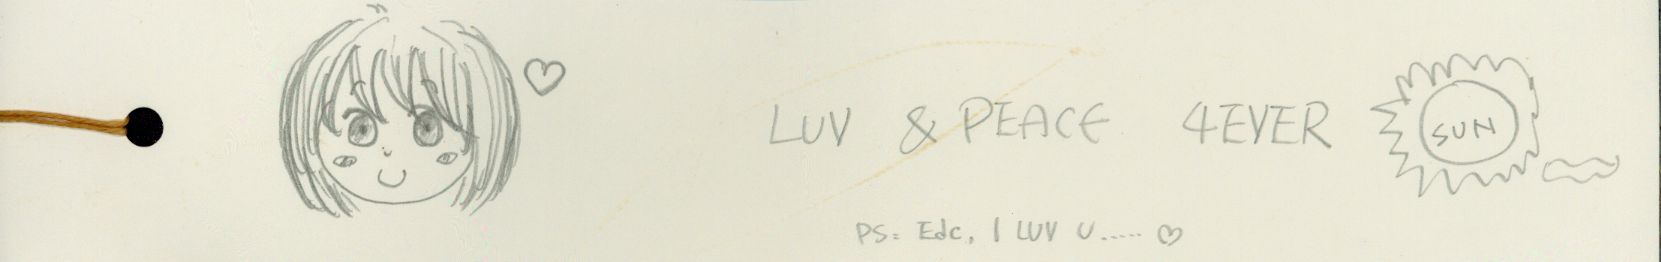 LUV & PEACE 4EVER
SUN
PS: Edc, I LUV U..... ♡